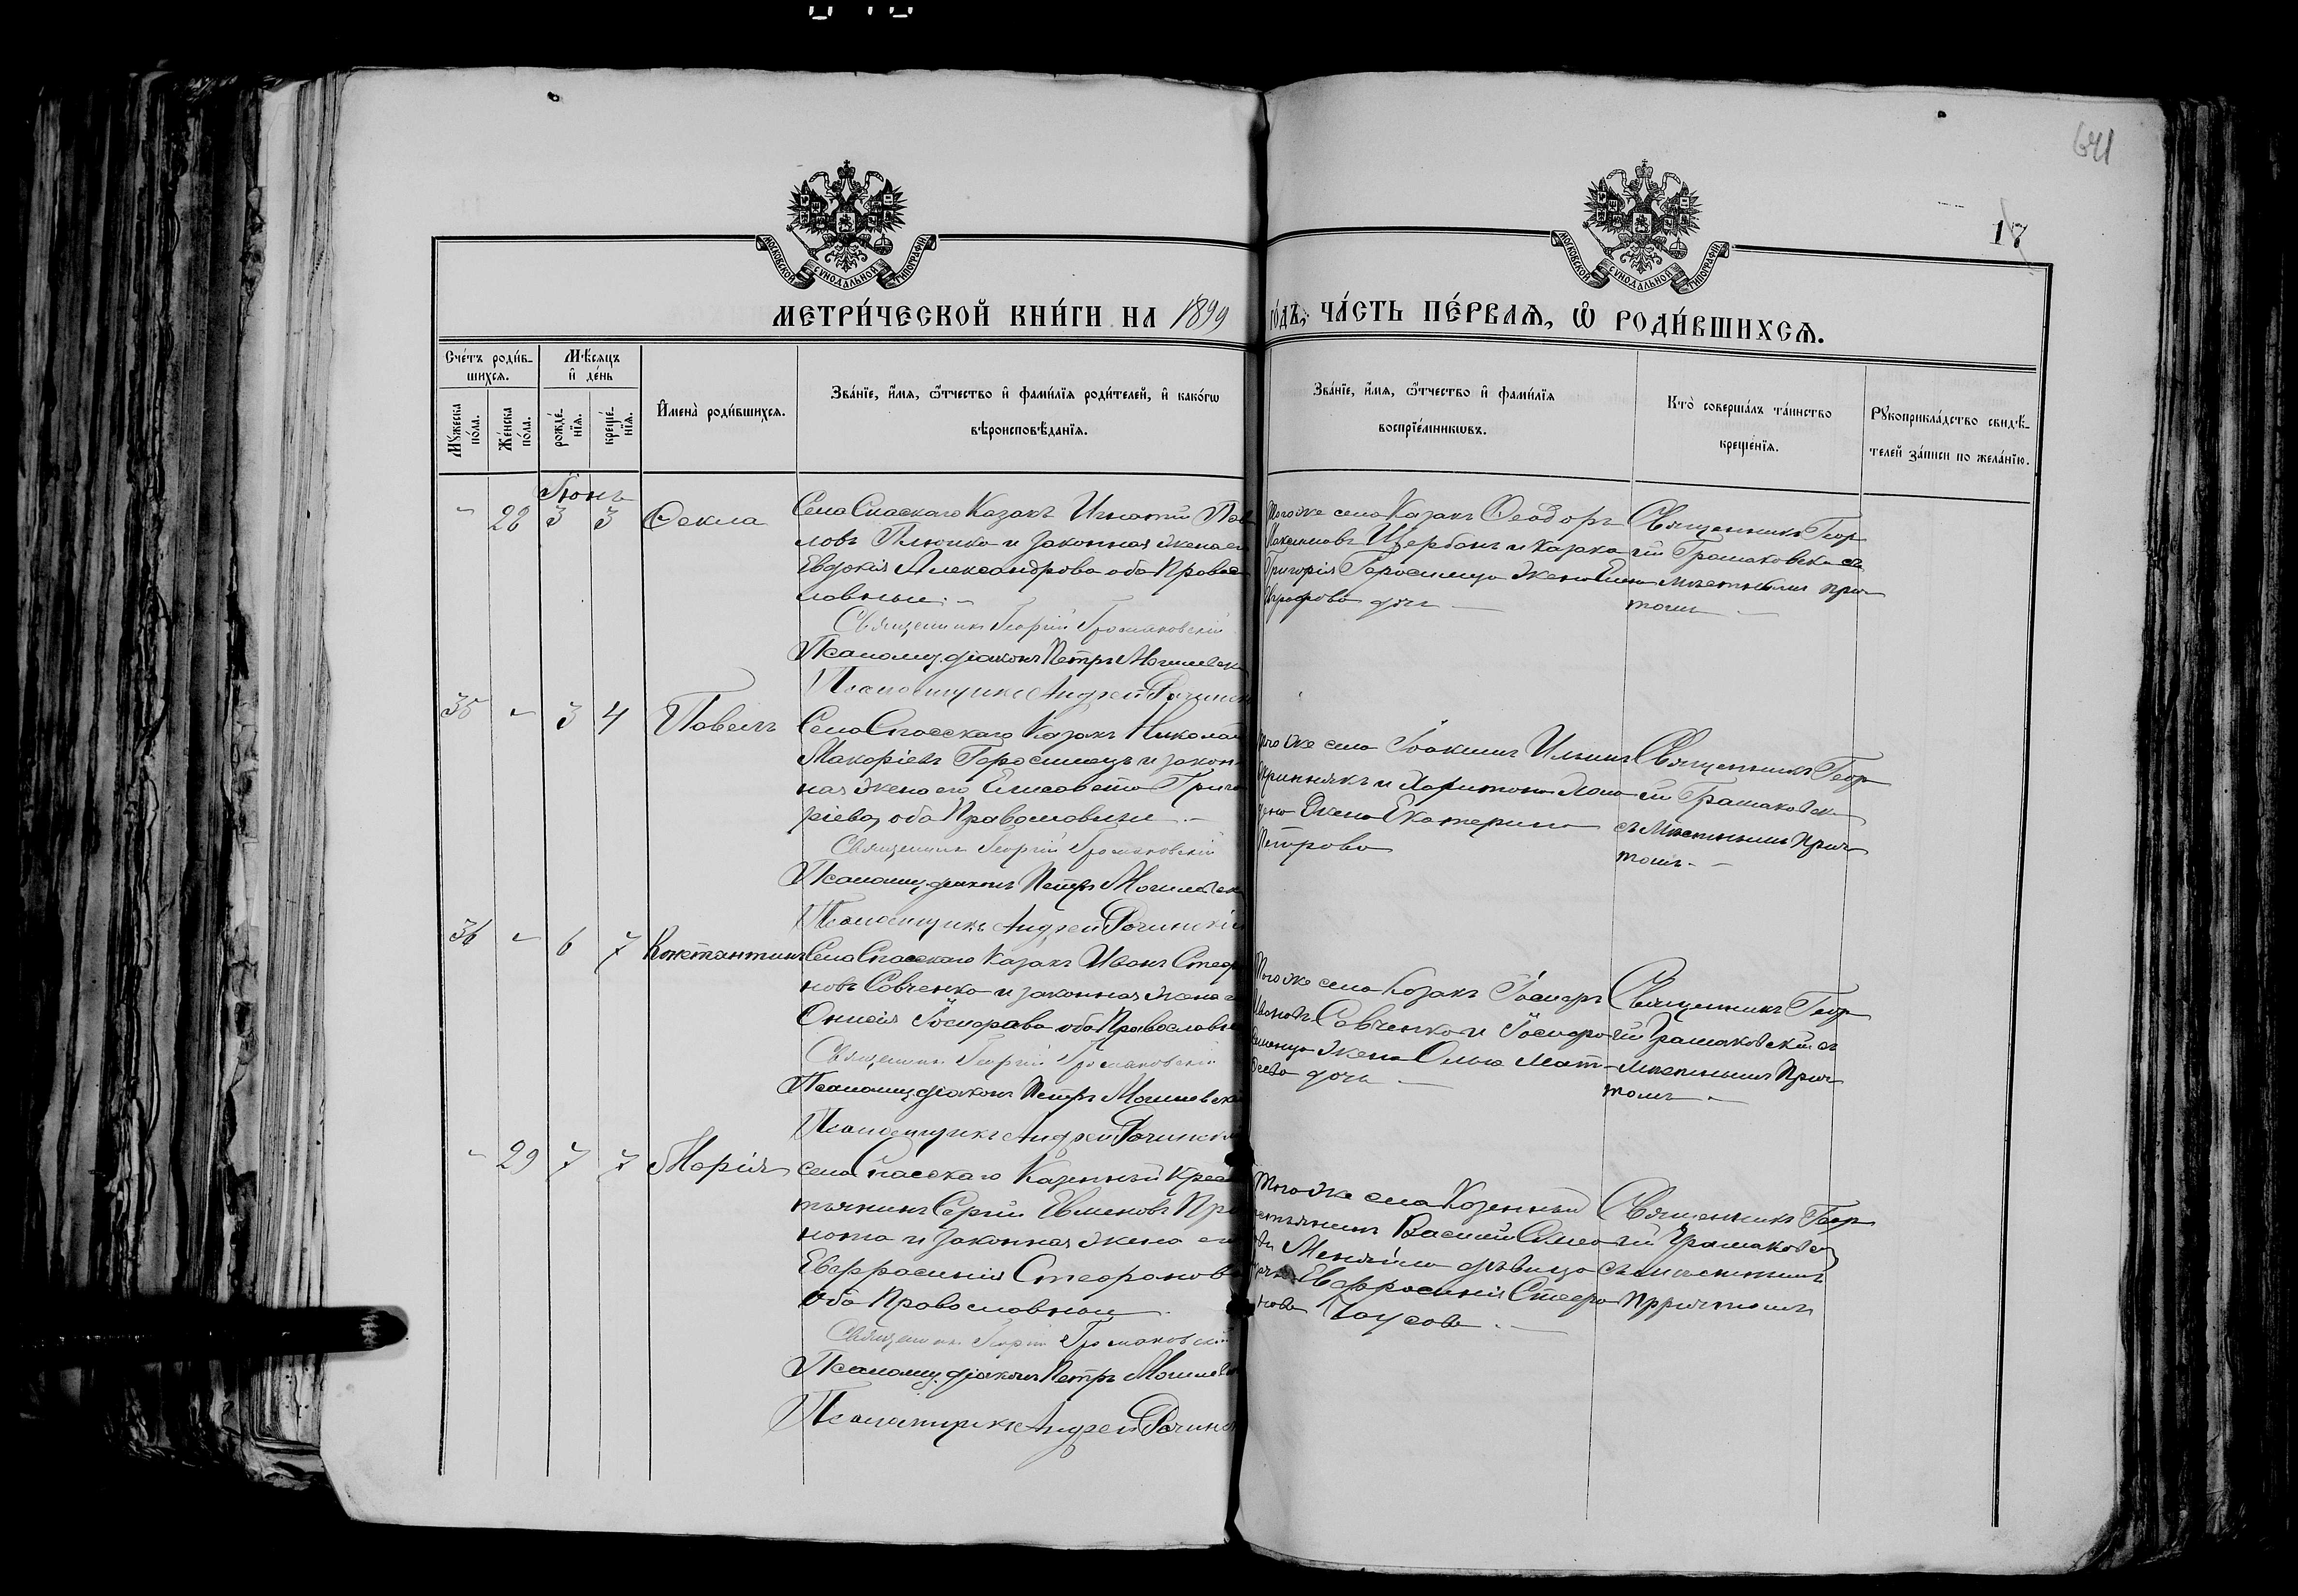 641
17
МОСКОВСКОЙ СѴНОДАЛЬНОЙ ТИПОГРАФІИ
МОСКОВСКОЙ СѴНОДАЛЬНОЙ ТИПОГРАФІИ
МЕТРИ́ЧЕСКОЙ КНИ́ГИ НА 1899
ГО́ДЪ, ЧА́СТЬ ПЕ́РВАѦ, Ѡ҆ РОДИ́ВШИХСѦ.
Сче́тъ роди́в-
шихсѧ.
Мѣ́сѧцъ
и҆ де́нь
Мꙋ́жеска
по́ла.
Же́нска
по́ла.
рожде́-
нїѧ.
креще́-
нїѧ.
И҆мена̀ роди́вшихсѧ.
Зва́нїе, и҆́мѧ, ѻ҆́тчество и҆ фами́лїѧ роди́телей, и҆ како́гѡ
вѣроисповѣ́данїѧ.
Зва́нїе, и҆́мѧ, ѻ҆́тчество и҆ фами́лїѧ
воспрїе́мникѡвъ.
Кто̀ соверша́лъ та́инство
креще́нїѧ.
Рꙋкоприкла́дство свидѣ́-
телей за́писи по жела́нїю.
Іюнь
28 3 3 Ѳекла
Села Спаскаго Казакъ Игнатій Пав
ловъ Плюшко и законная жена его
Евдокія Александрова оба Правос
лавные.
Священникъ Георгій Громаковскій
Псаломщ. діаконъ Петръ
Псаломщикъ Андрей
Того же села Казакъ Ѳеодоръ
Максимовъ Щербань и казака
Григорія Герасимца жена
дочь
Священникъ Геор
гій Громаковскій съ
мѣстнымъ прич
томъ
35 - 3 4 Павелъ
Села Спасскаго Казакъ Николай
Макаріевъ Герасимецъ и закон
ная жена его Елисавета Григо
ріева, оба Православные
Священникъ Георгій Громаковскій
Псаломщ. діаконъ Петръ
Псаломщикъ Андрей
Того же села Іоакимъ Ильинъ
и Харитона
жена Екатерина
Петрова
Священникъ Геор
гій Громаковскій
съ мѣстнымъ Прич
томъ
36 - 6 7 Константинъ
Села Спасскаго Казакъ Иванъ Стефа
новъ Савченко и законная жена его
Онисія Іосифова оба Православные
Священникъ Георгій Громаковскій
Псаломщ. діаконъ Петръ
Псаломщикъ Андрей
Того же села Козакъ Іосифъ
Ивановъ Савченко и Іосифа
жена Ольга Мат
веева дочь
Священникъ Геор
гій Громаковскій съ
мѣстнымъ Прич
томъ
- 29 7 7 Марія
села Спасскаго Казенный Крес
тьянинъ Сергій Евменовъ
и законная жена его
Евфросинія Стефанова
Оба Православные
Священникъ Георгій Громаковскій
Псаломщ. діаконъ Петръ
Псаломщикъ Андрей
Того же села Козенный
крестьянинъ Василій Симео
новъ дѣвица
Евфросинія Стефа
нова Чаусова
Священникъ Геор
гій Громаковскій
съ мѣстнымъ
Причтомъ